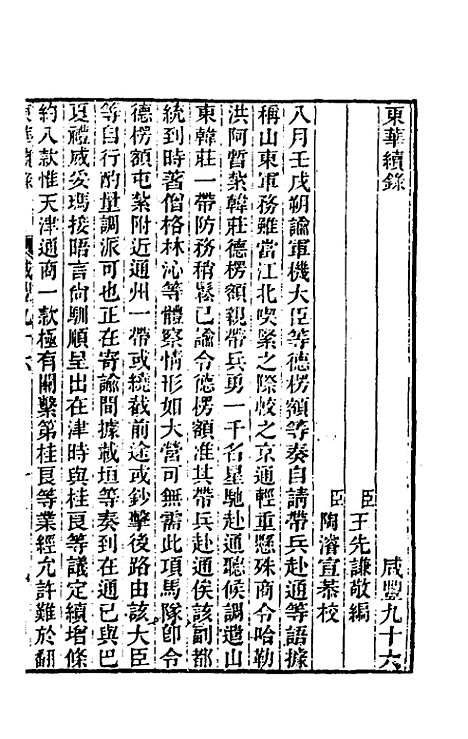 東華續錄 咸豐九十六
臣王先謙敬編
臣陶濬宣恭校
八月壬戌朔諭軍機大臣等德楞額等奏自請帶兵赴通等語據
稱山東軍務雖當江北喫緊之際較之京通輕重懸殊商令哈勒
洪阿暫紮韓莊德楞額親帶兵勇一千名星馳赴通聽候調遣山
東韓莊一帶防務稍鬆已諭令德楞額准其帶兵赴通俟該副都
統到時著僧格林沁等體察情形如大營可無需此項馬隊卽令
德楞額屯紮附近通州一帶或繞截前途或鈔擊後路由該大臣
等自行酌量調派可也正在寄諭間據載垣等奏到在通已與巴
夏禮威妥瑪接晤言尙馴順呈出在津時與桂良等議定續增條
約八款惟天津通商一款極有關繫第桂良等業經允許難於翻
東華續錄 咸豐九十六